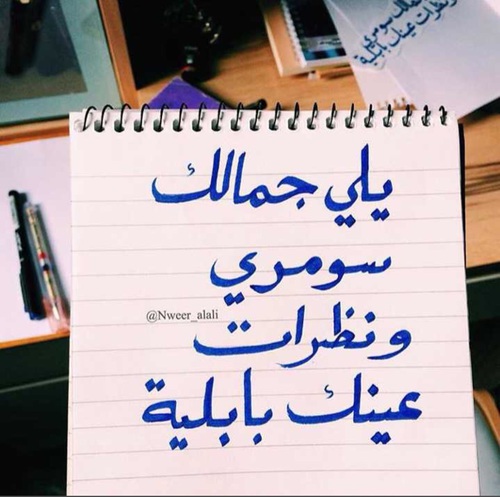 يلي جمالك
سومري
@Nweer_alali
ونظرات
عينك بابلية